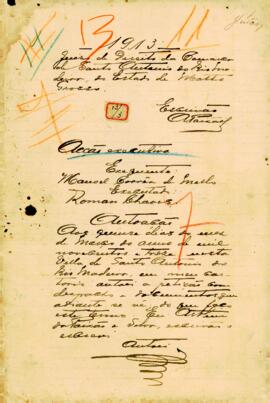 1913
Juizo de Direito da Comarca
de Santo Antonio do Rio Ma-
deira, do Estado de Matto
Grosso.
Escrivão
Acção executiva
Exequente
Manoel Corrêa de Mello
Executado
Roman Chaves
Autoação
Aos quinze dias do mez
de Março do anno de mil
novecentos e treze nesta
Villa de Santo Antonio do
Rio Madeira, em meu car-
torio autôo a petição com
despacho e documentos que
adiante se vê, do que faço
este termo. Eu
da Silva, escrivão o
escrevi.